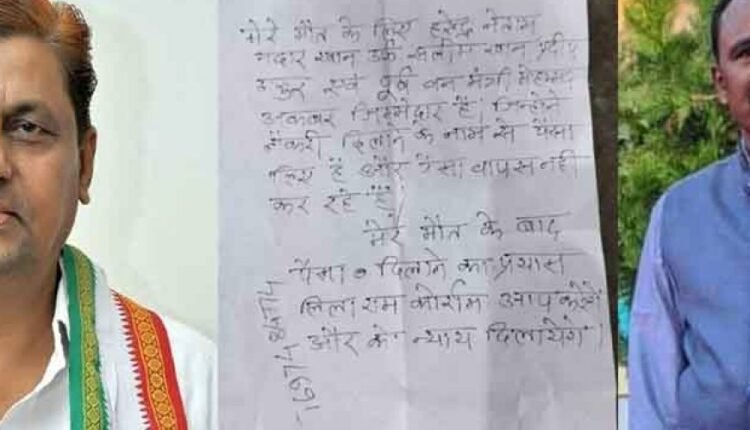 मेरे मौत के लिए हरेन्द्र नेताम
मदार खान उर्फ सलीम खान प्रदीप
ठाकुर एवं पूर्व वन मंत्री मोहम्मद
अकबर जिम्मेदार है। जिन्होने
नौकरी दिलाने के नाम से पैसा
लिए है और पैसा वापस नही
कर रहे है
मेरे मौत के बाद
पैसा दिलाने का प्रयास
लिलाराम कोर्राम आप करेगें
और के न्याय दिलायेगें।